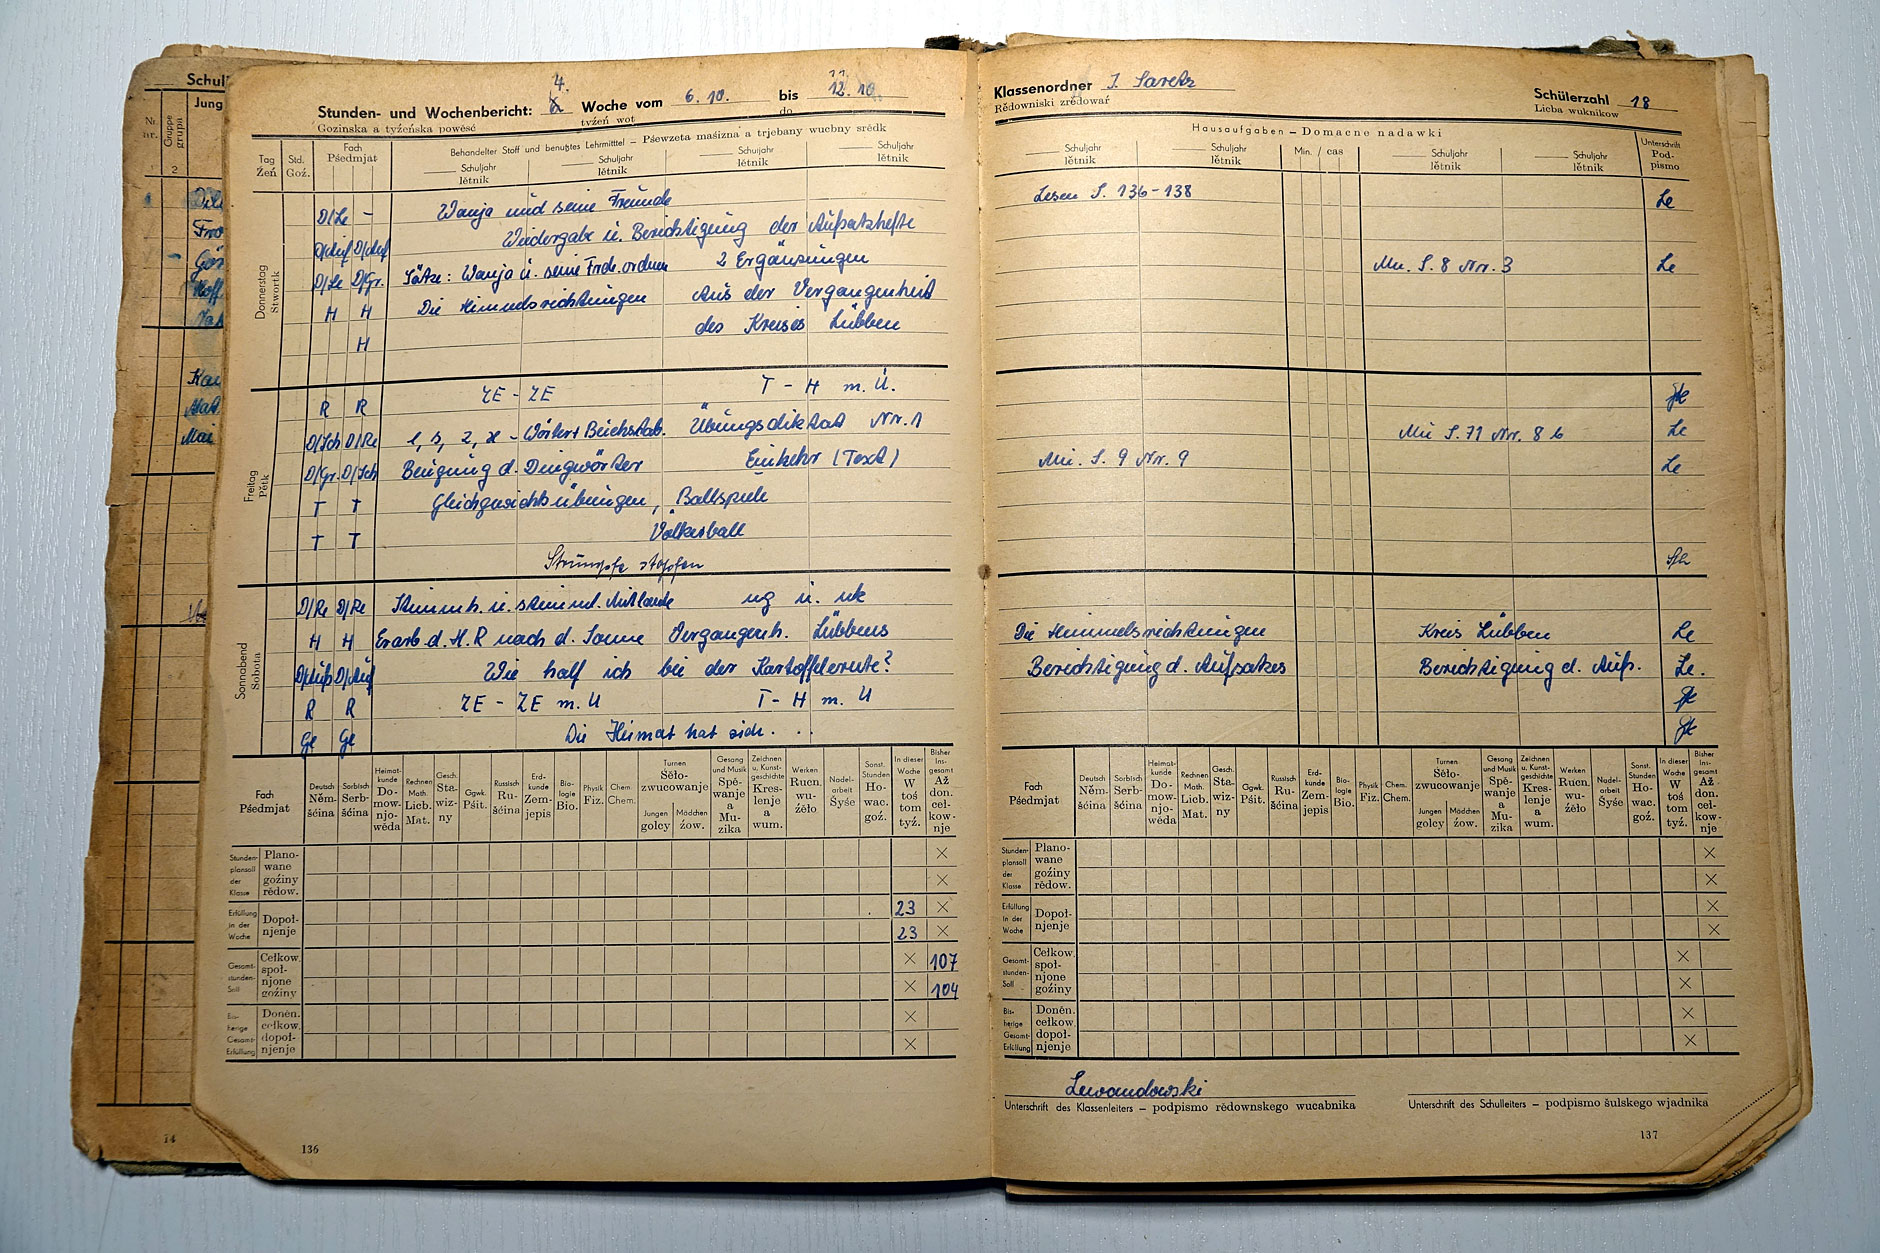 Schul
Jung
Nr.
nr.
Gruppe
grupa
1
2
14
4.
Stunden- und Wochenbericht: Woche vom 6.10. bis 11. 12.10.
Gozinska a tyźeńska powěsć tyźeń wot do
Tag Źeń
Std. Goź.
Fach Pśedmjat
Behandelter Stoff und benutztes Lehrmittel – Pśewzeta maśizna a trjebany wucbny srědk
Schuljahr lětnik
Schuljahr lětnik
Schuljahr lětnik
Schuljahr lětnik
Donnerstag Stwortk
D/Le – Wanja und seine Freunde
D/Auf D/Auf Wiedergabe u. Berichtigung der Aufsatzhefte
D/Le D/Gr. Sätze: Wanja u. seine Frde. ordnen 2 Ergänzungen
H H Die Himmelsrichtungen Aus der Vergangenheit
H des Kreises Lübben
Freitag Pětk
R R ZE - ZE T - H m. Ü.
D/Sch D/Re Wörter + Buchstab. Übungsdiktat Nr. 1
D/Gr. D/Sch Beugung d. Dingwörter Einkehr (Text)
T T Gleichgewichtsübungen, Ballspiele
T T Völkerball
Strümpfe stopfen
Sonnabend Sobota
D/Re D/Re Stimmh. u. stimml. Auslaute ng u. nk
H H Erarb. d. H. R nach d. Sonne Vergangenh. Lübbens
D/Auf D/Auf Wie half ich bei der Kartoffelernte?
R R ZE - ZE m. Ü T - H m. Ü
Ge Ge Die Heimat hat sich . . .
Fach Pśedmjat
Deutsch Němšćina
Sorbisch Serbšćina
Heimatkunde Domownjowěda
Rechnen Math. Licb. Mat.
Gesch. Stawizny
Ggwk. Pśit.
Russisch Rušćina
Erdkunde Zemjepis
Biologie Bio.
Physik Fiz.
Chem. Chem.
Turnen Śěłozwucowanje
Jungen golcy
Mädchen źow.
Gesang und Musik Spěwanje a Muzika
Zeichnen u. Kunstgeschichte Kreslenje a wum.
Werken Rucn. wuźěło
Nadelarbeit Šyśe
Sonst. Stunden Howac. goź.
In dieser Woche W toś tom tyź.
Bisher insgesamt Až don. cełkownje
Stundenplansoll der Klasse Planowane goźiny rědow.
Erfüllung in der Woche Dopołnjenje 23
23
Gesamtstunden-Soll Cełkow. społnjone goźiny 107
104
Bisherige Gesamt-Erfüllung Doněn. cełkow. dopołnjenje
136
Klassenordner J. Saretz
Rědowniski zrědowaŕ
Schülerzahl 18
Licba wuknikow
Hausaufgaben – Domacne nadawki
Schuljahr lětnik
Schuljahr lětnik
Min. / cas
Schuljahr lětnik
Schuljahr lětnik
Unterschrift Podpismo
Lesen S. 136-138 Le
Mu. S. 8 Nr. 3 Le
Mu S. 71 Nr. 8 b Le
Mu. S. 9 Nr. 9 Le
Die Himmelsrichtungen Kreis Lübben Le
Berichtigung d. Aufsatzes Berichtigung d. Aufs. Le.
Fach Pśedmjat
Deutsch Němšćina
Sorbisch Serbšćina
Heimatkunde Domownjowěda
Rechnen Math. Licb. Mat.
Gesch. Stawizny
Ggwk. Pśit.
Russisch Rušćina
Erdkunde Zemjepis
Biologie Bio.
Physik Fiz.
Chem. Chem.
Turnen Śěłozwucowanje
Jungen golcy
Mädchen źow.
Gesang und Musik Spěwanje a Muzika
Zeichnen u. Kunstgeschichte Kreslenje a wum.
Werken Rucn. wuźěło
Nadelarbeit Šyśe
Sonst. Stunden Howac. goź.
In dieser Woche W toś tom tyź.
Bisher insgesamt Až don. cełkownje
Stundenplansoll der Klasse Planowane goźiny rědow.
Erfüllung in der Woche Dopołnjenje
Gesamtstunden Soll Cełkow. społnjone goźiny
Bisherige Gesamt-Erfüllung Doněn. cełkow. dopołnjenje
Lewandowski
Unterschrift des Klassenleiters – podpismo rědownskego wucabnika
Unterschrift des Schulleiters – podpismo šulskego wjadnika
137